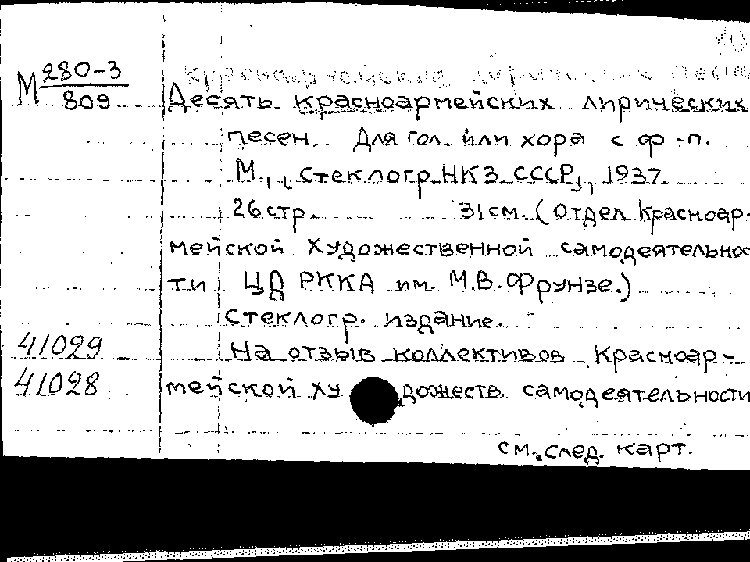 10
М 280-3
809
Красноармейские лирические песни
Десять красноармейских лирических
песен. Для гол. или хора с ф-п.
М., Стеклогр. НКЗ СССР, 1937.
26 стр. 31 см. (Отдел Красноар-
мейской художественной самодеятельнос
ти ЦД РККА им. М.В. Фрунзе.)
Стеклогр. издание.
41029 На отзыв коллективов Красноар-
41028 мейской худжеств. самодеятельности
см. след. карт.